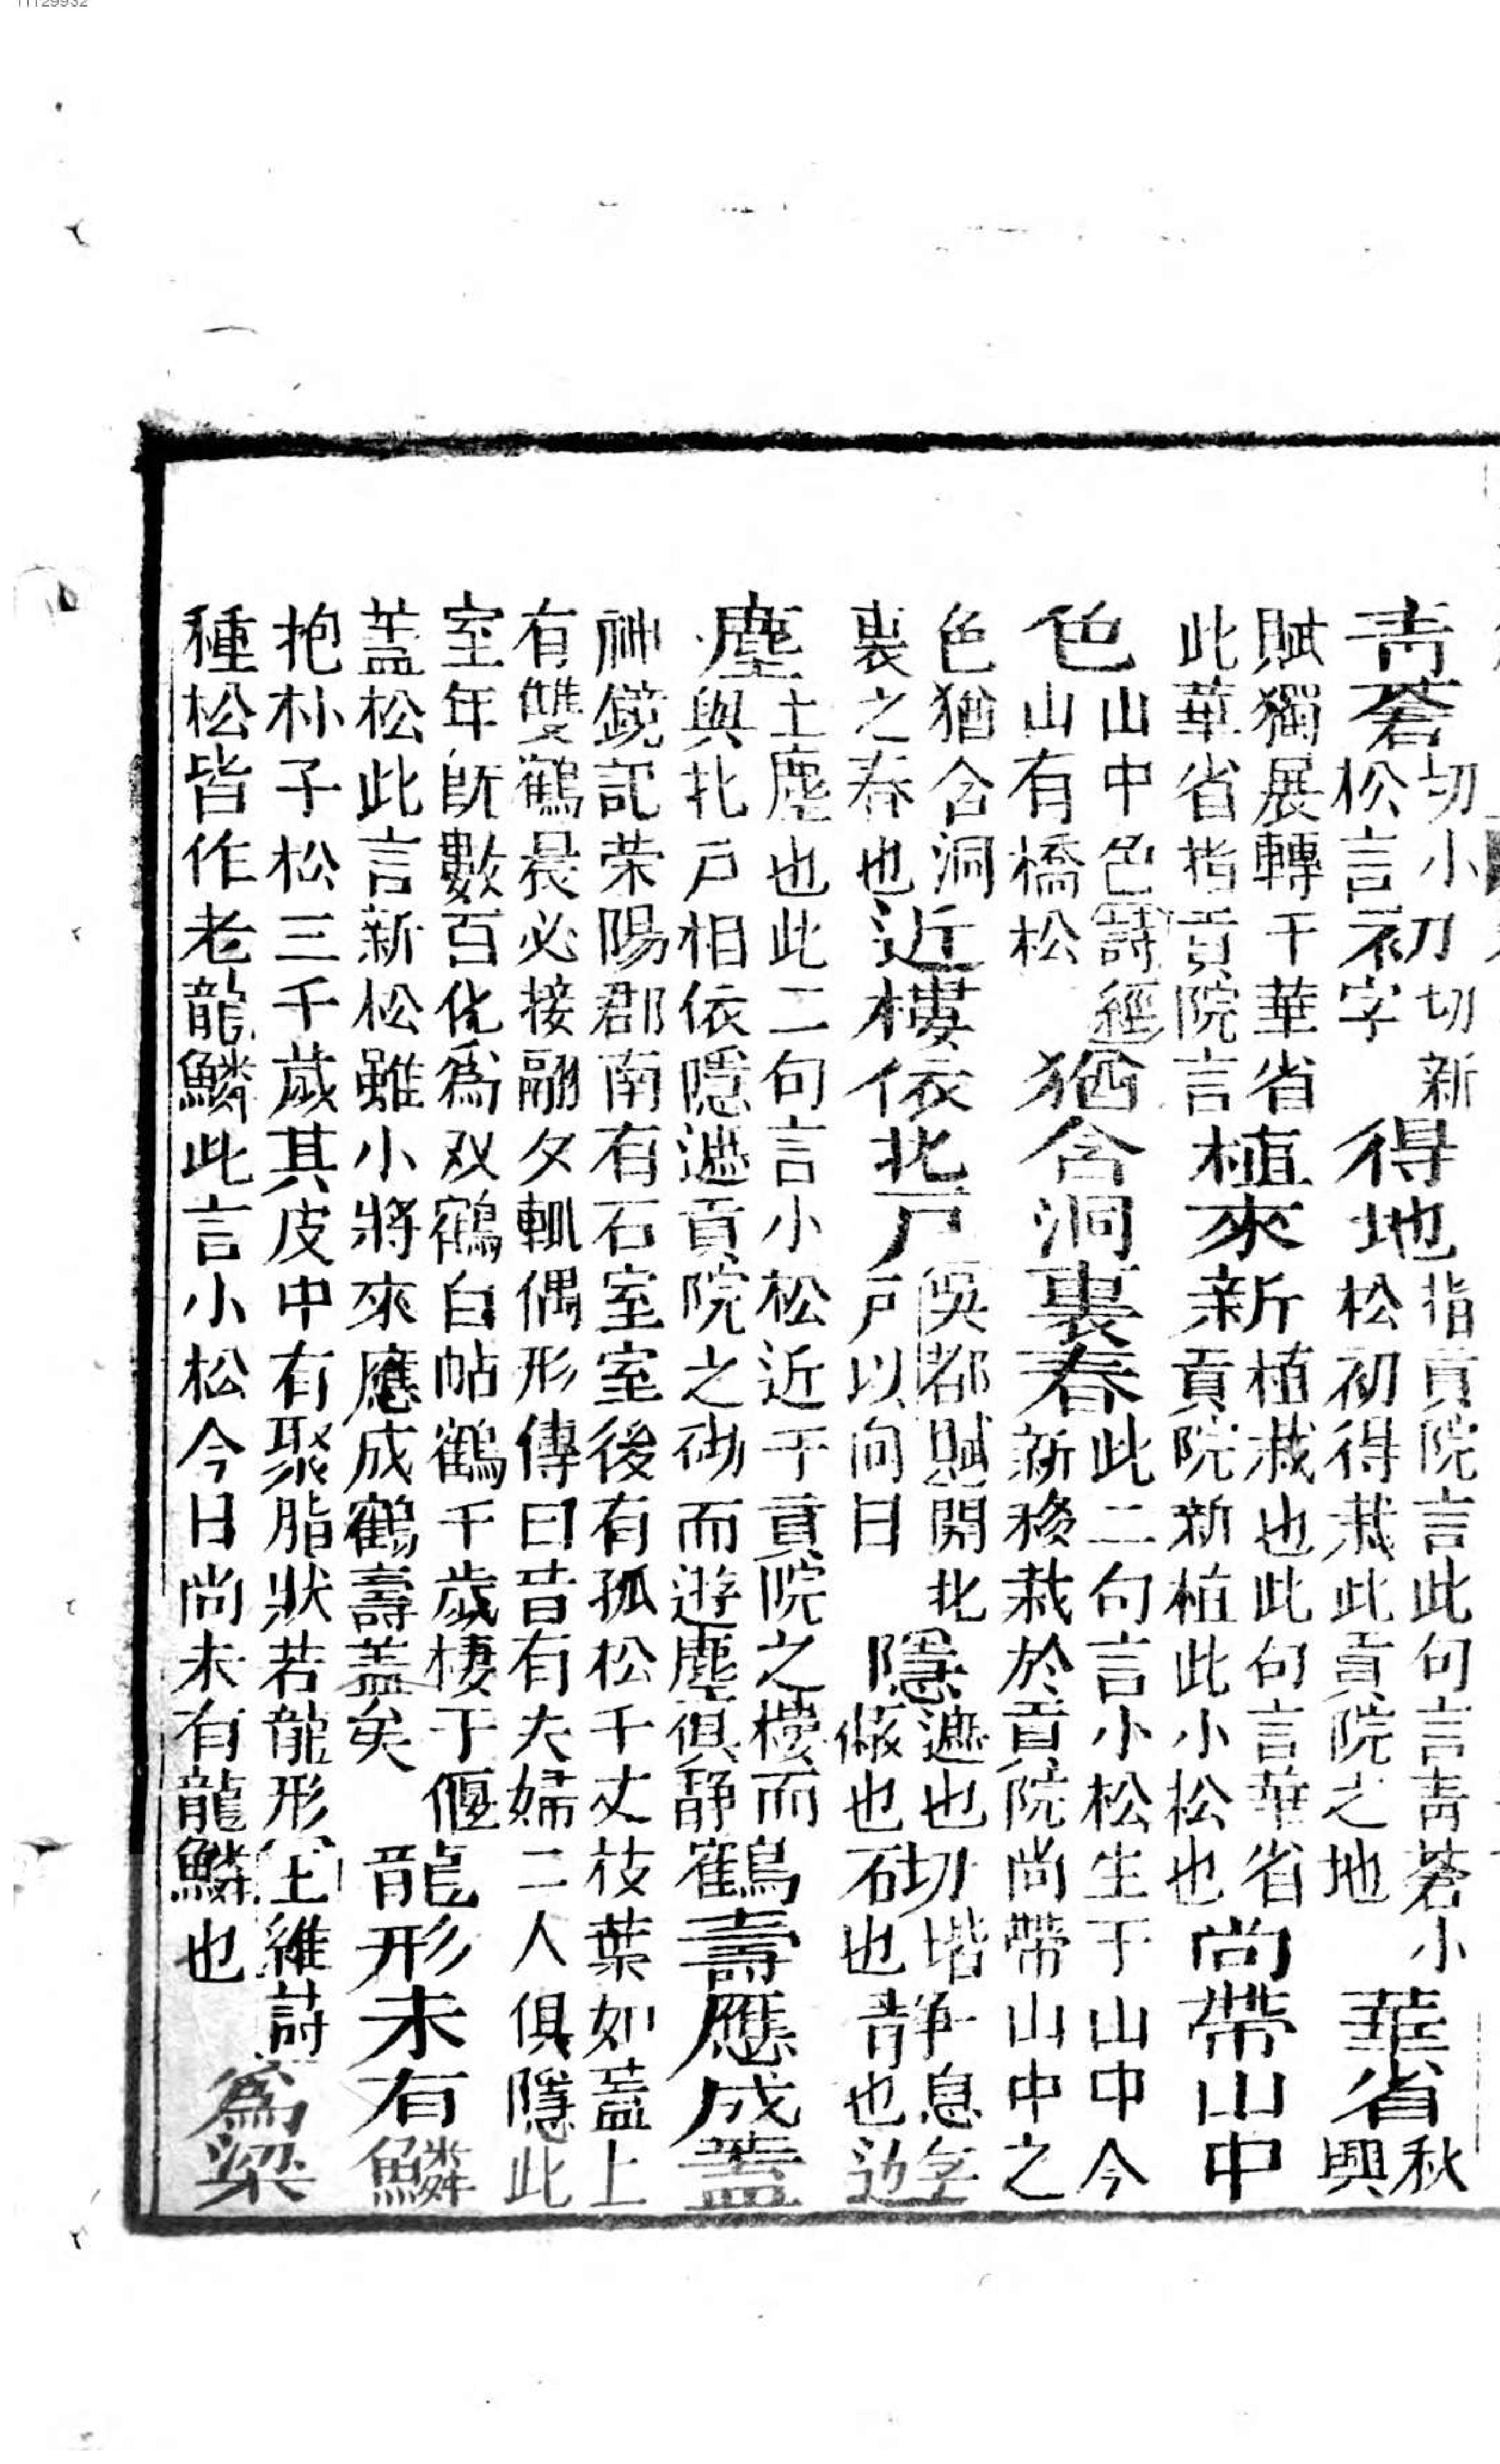 青蒼切小松言初切新字得地指貢院言此句言青蒼小松初得栽此貢院之地華省秋興
賦獨展轉于華省此華省指貢院言植來新植栽也此句言華省貢院新植此小松也尚帶山中
色山中色詩經山有橋松猶含洞裏春此二句言小松生于山中今新移栽於貢院尚帶山中之
色猶含洞裏之春也近樓依北戶吳都賦開北戶以向日隱遮也僻也砌堦也靜息也遊
塵土塵也此二句言小松近于貢院之樓而與北戶相依隱遮貢院之砌而遊塵俱靜鶴壽應成蓋
神鏡記荣陽郡南有石室室後有孤松千丈枝葉如蓋上有雙鶴晨必接翮夕輒偶形傳曰昔有夫婦二人俱隱此
室年既數百化爲双鶴白帖鶴千歲棲于偃蓋松此言新松雖小將來應成鶴壽蓋矣龍形未有鱗
抱朴子松三千歲其皮中有聚脂狀若龍形王維詩種松皆作老龍鱗此言小松今日尚未有龍鱗也爲梁